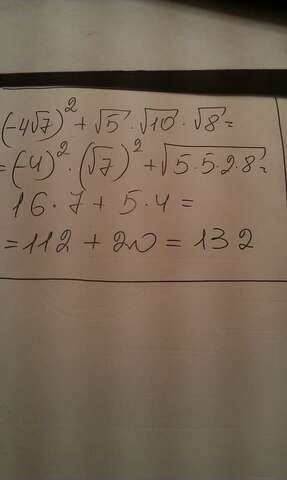 (-4√7)² + √5 · √10 · √8 =
= (-4)² · (√7)² + √5·5·2·8 =
16 · 7 + 5 · 4 =
= 112 + 20 = 132